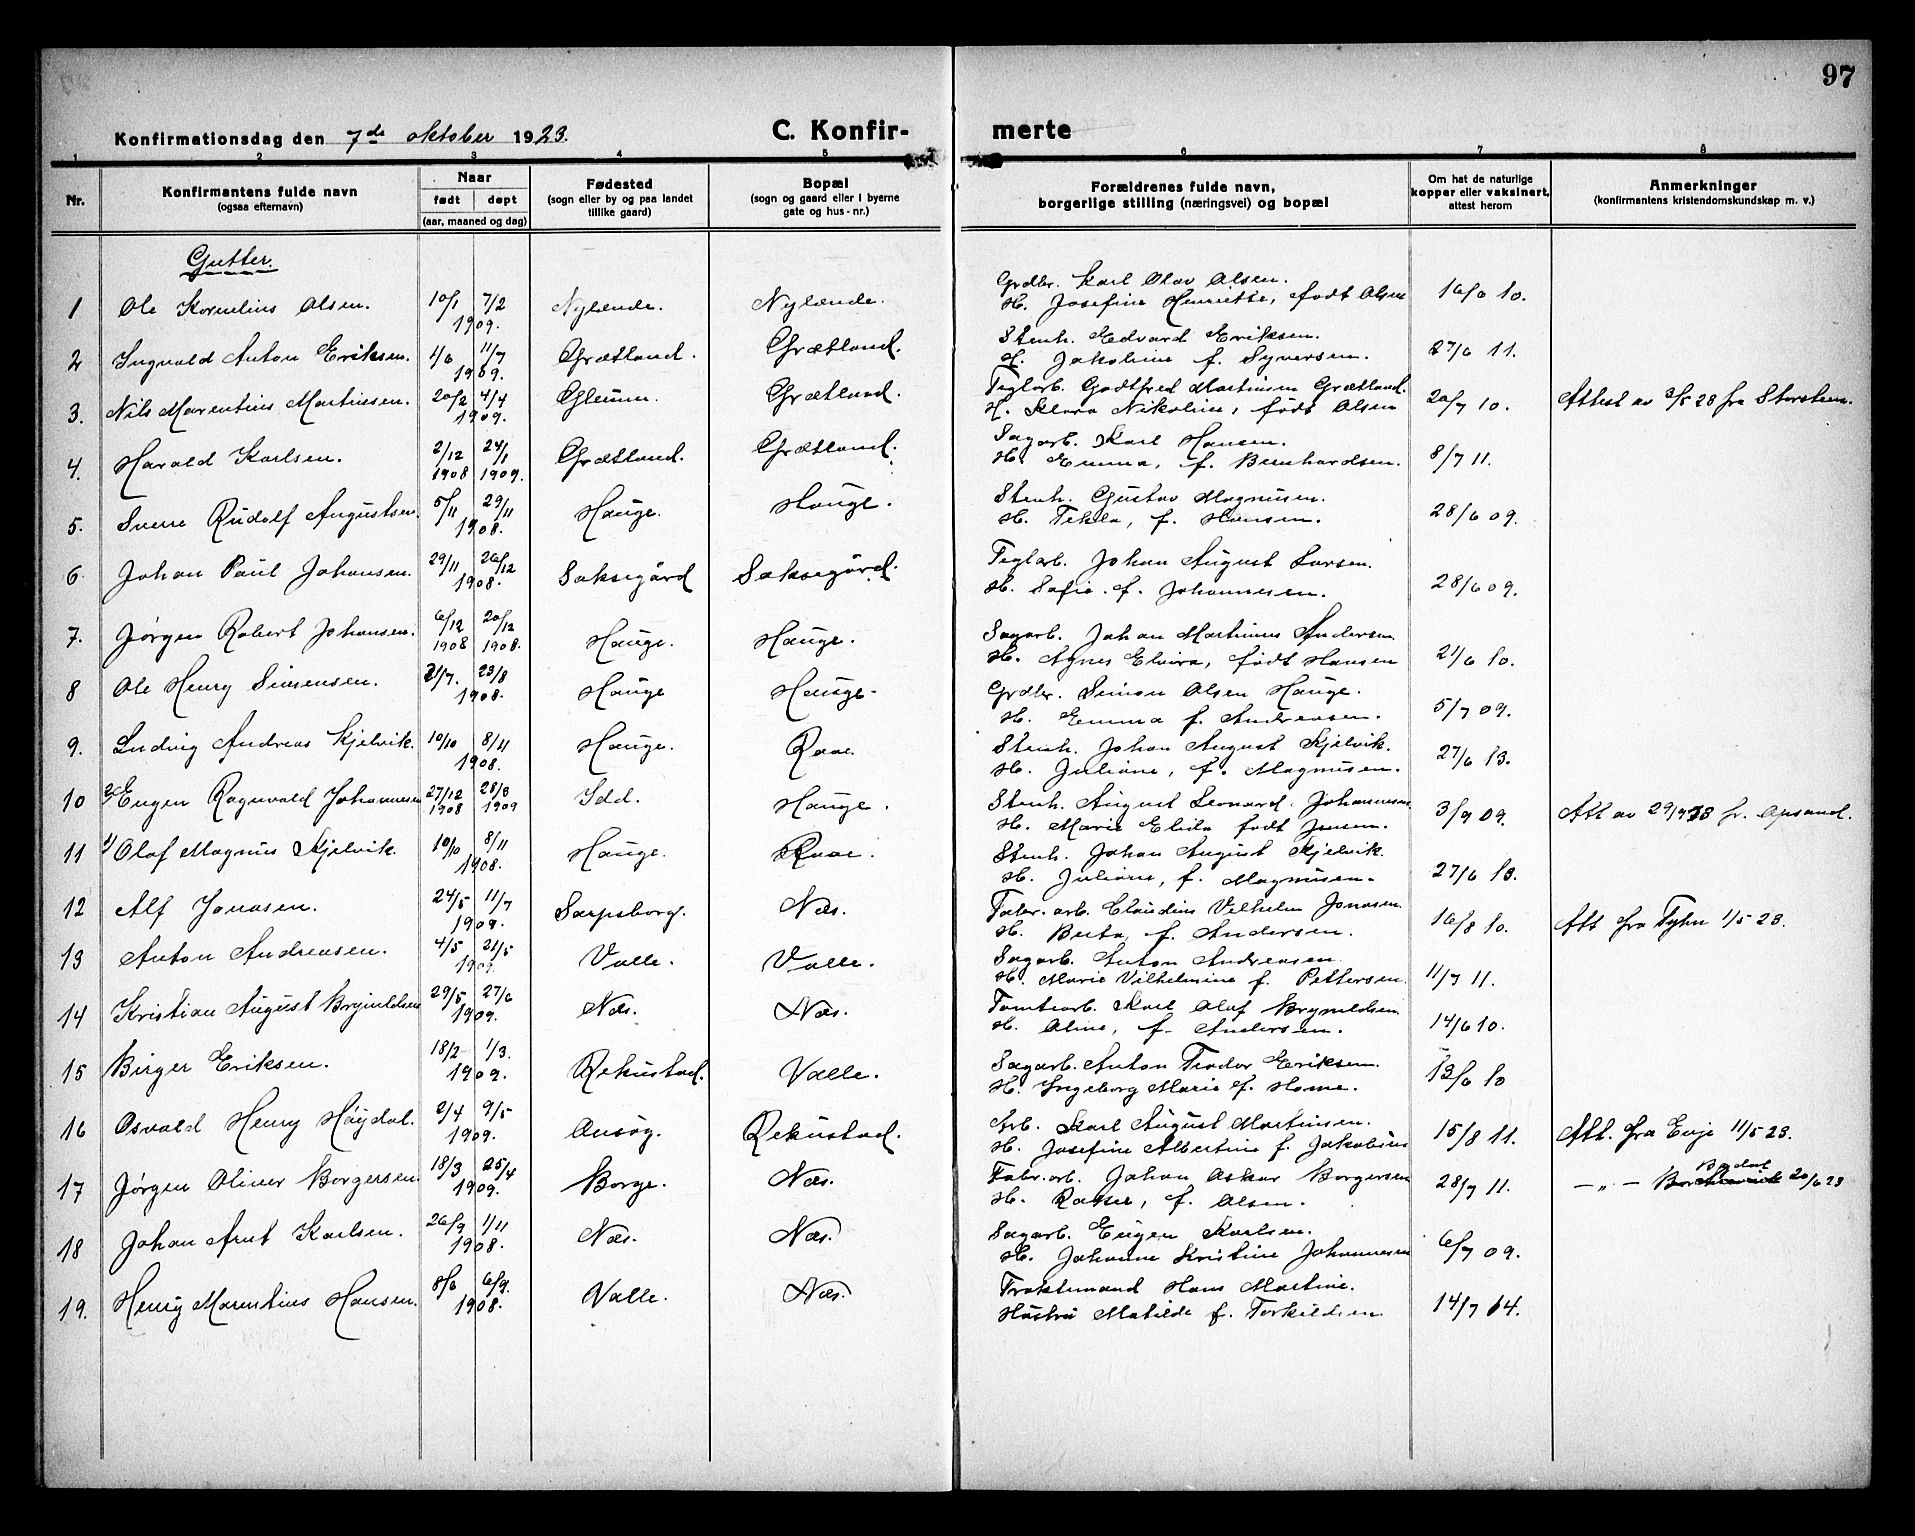 97
Konfirmationsdag den 7de oktober 1923.
C. Konfir-merte
1 2 3 4 5 6 7 8
Nr.
Konfirmantens fulde navn
(ogsaa efternavn)
Naar
født døpt
(aar, maaned og dag)
Fødested
(sogn eller by og paa landet
tillike gaard)
Bopæl
(sogn og gaard eller i byerne
gate og hus-nr.)
Forældrenes fulde navn,
borgerlige stilling (næringsvei) og bopæl
Om hat de naturlige
kopper eller vaksinert,
attest herom
Anmerkninger
(konfirmantens kristendomskundskap m. v.)
Gutter.
1 Ole Kornelius Olsen. 10/1 7/2 1909. Nylænde. Nylænde. Grdbr. Karl Olav Olsen.
H. Josefine Henriette, født Olsen 16/6 10.
2 Ingvald Anton Eriksen. 1/6 11/7 1909. Grætland. Grætland. Stenh. Edvard Eriksen.
H. Jakobine f. Syversen. 27/6 11.
3. Nils Marentius Martinsen. 20/2 4/4 1909. Glemm. Grætland. Teglarb. Godtfred Martinsen Grætland.
H. Klara Nikoline, født Olsen 20/7 10. Attest av 2/5 23 fra Storsteen.
4. Harald Karlsen. 2/12 1908 24/1 1909. Grætland. Grætland. Sagarb. Karl Hansen.
H. Emma, f. Bernhardsen. 8/7 11.
5. Sverre Rudolf Augustsen. 5/11 29/11 1908. Hauge. Hauge. Stenh. Gustav Magnusen.
H. Tekla, f. Hansen. 28/6 09.
6. Johan Paul Johansen. 29/11 26/12 1908. Saksegård Saksegård. Teglarb. Johan August Larsen.
H. Sofie. f. Johannesen. 28/6 09.
7. Jørgen Robert Johansen. 6/12 1908 20/12 1908. Hauge. Hauge. Sagarb. Johan Martinius Andersen
H. Agnes Elvira, født Hansen 21/6 10.
8 Ole Henry Simensen. 21/7. 23/8 1908. Hauge Hauge. Grdbr. Simon Olsen Hauge.
H. Emma f. Andreasen. 5/7 09.
9. Ludvig Andreas Kjelvik. 10/10 8/11 1908. Hauge. Raae. Stenh. Johan August Kjelvik.
H. Juliane, f. Magnusen. 27/6 13.
10 2) Eugen Ragnvald Johannesen 27/12 1908 28/3 1909 Idd. Hauge. Stenh. August Leonard Johannesen
H. Marie Elida født Jensen. 3/9 09. Att av 29/4 23 fr.
11 1) Olaf Magnus Kjelvik. 10/10 8/11 1908. Hauge. Raae. Stenh. Johan August Kjelvik.
H. Juliane, f. Magnusen. 27/6 13.
12 Alf Jonasen. 24/5 11/7 1909. Sarpsborg. Næs. Fabr. arb. Claudius Vilhelm Jonasen
H. Berta, f. Andersen. 16/8 10. Att fra 1/5 23.
13 Anton Andreasen. 4/5 21/5 1909. Valle. Valle. Sagarb. Anton Andreasen
H. Marie Vilhelmine f. Pettersen. 11/7 11.
14 Kristian August Brynildsen 29/5 27/6 1909. Næs. Næs. Tomtearb. Karl Olaf Brynildsen
H. Aline, f. Andersen. 14/6 10.
15 Birger Eriksen. 18/2 1/3. 1909. Rekustad. Valle. Sagarb. Anton Teodor Eriksen.
H. Ingeborg Marie f. Home. 13/6 10
16 Osvald Henry Høydal. 2/4 9/5 1909. Ansøg. Rekustad. Arb. Karl August Martinsen.
H. Josefine Albertine f. Jakobsen 15/8 11. Att. fra Evje 11/5 23.
17 Jørgen Oliver Borgersen. 18/3 25/4 1909. Borge. Næs. Fabr. arb. Johan Oskar Borgersen
H. Ragna, f. Olsen. 28/7 11. — " — 20/6 23
18 Johan Arnt Karlsen. 26/9 1/11 1908. Næs. Næs. Sagarb. Eugen Karlsen.
H. Johanne Kristine Johannesen 6/7 09.
19. Henry Marentius Hansen. 8/6 6/9. 1908. Valle. Næs. Fraktemand Hans Martine.
Hustru Matilde f. Torkildsen. 14/7 14.